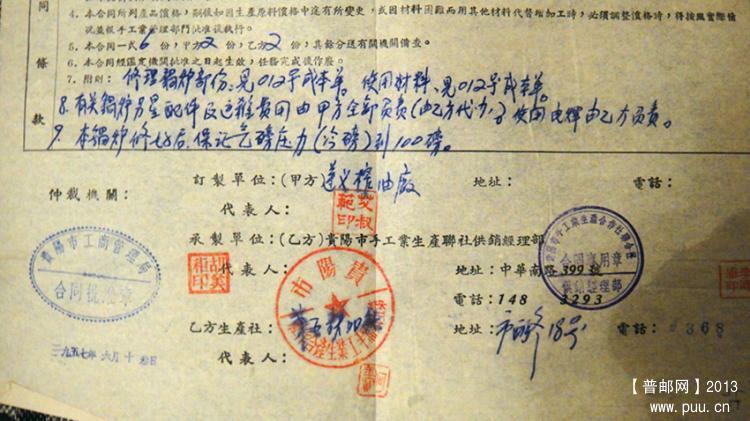 同
條
款
4. 本合同所列產品價格，嗣後如因生產原料價格中途有所變更，或因材料困難而用其他材料代替增加工時，必須調整價格時，將按照實際情
況並報手工業管理部門批准後執行。
5. 本合同一式6份，甲方2份，乙方2份，其餘分送有關機關備查。
6. 本合同經鑑定機關批准之日起生效，任務完成後作廢。
7. 附則：修理鍋炉部份，見012号成本单。使用材料，見012号成本单。
8. 有关鍋炉另星配件及运雜費用由甲方全部负責(由乙方代办) 使用电焊由乙方负責。
9. 本鍋炉修好后，保证气磅压力(冷磅)到100磅。
仲裁機關：
訂製單位：(甲方)遵义榨油廠
地址：
電話：
代表人：
艾叔範印
承製單位：(乙方)貴陽市手工業生產聯社供銷經理部
代表人：
地址：中華南路399號
電話：148 3293
貴陽市工商管理局
合同批准章
一九五七年六月十
貴陽市
合同專用章
供銷經理部
乙方生產社：
地址：市西路18号
電話：368
代表人：
【普邮网】2013
www.puu.cn